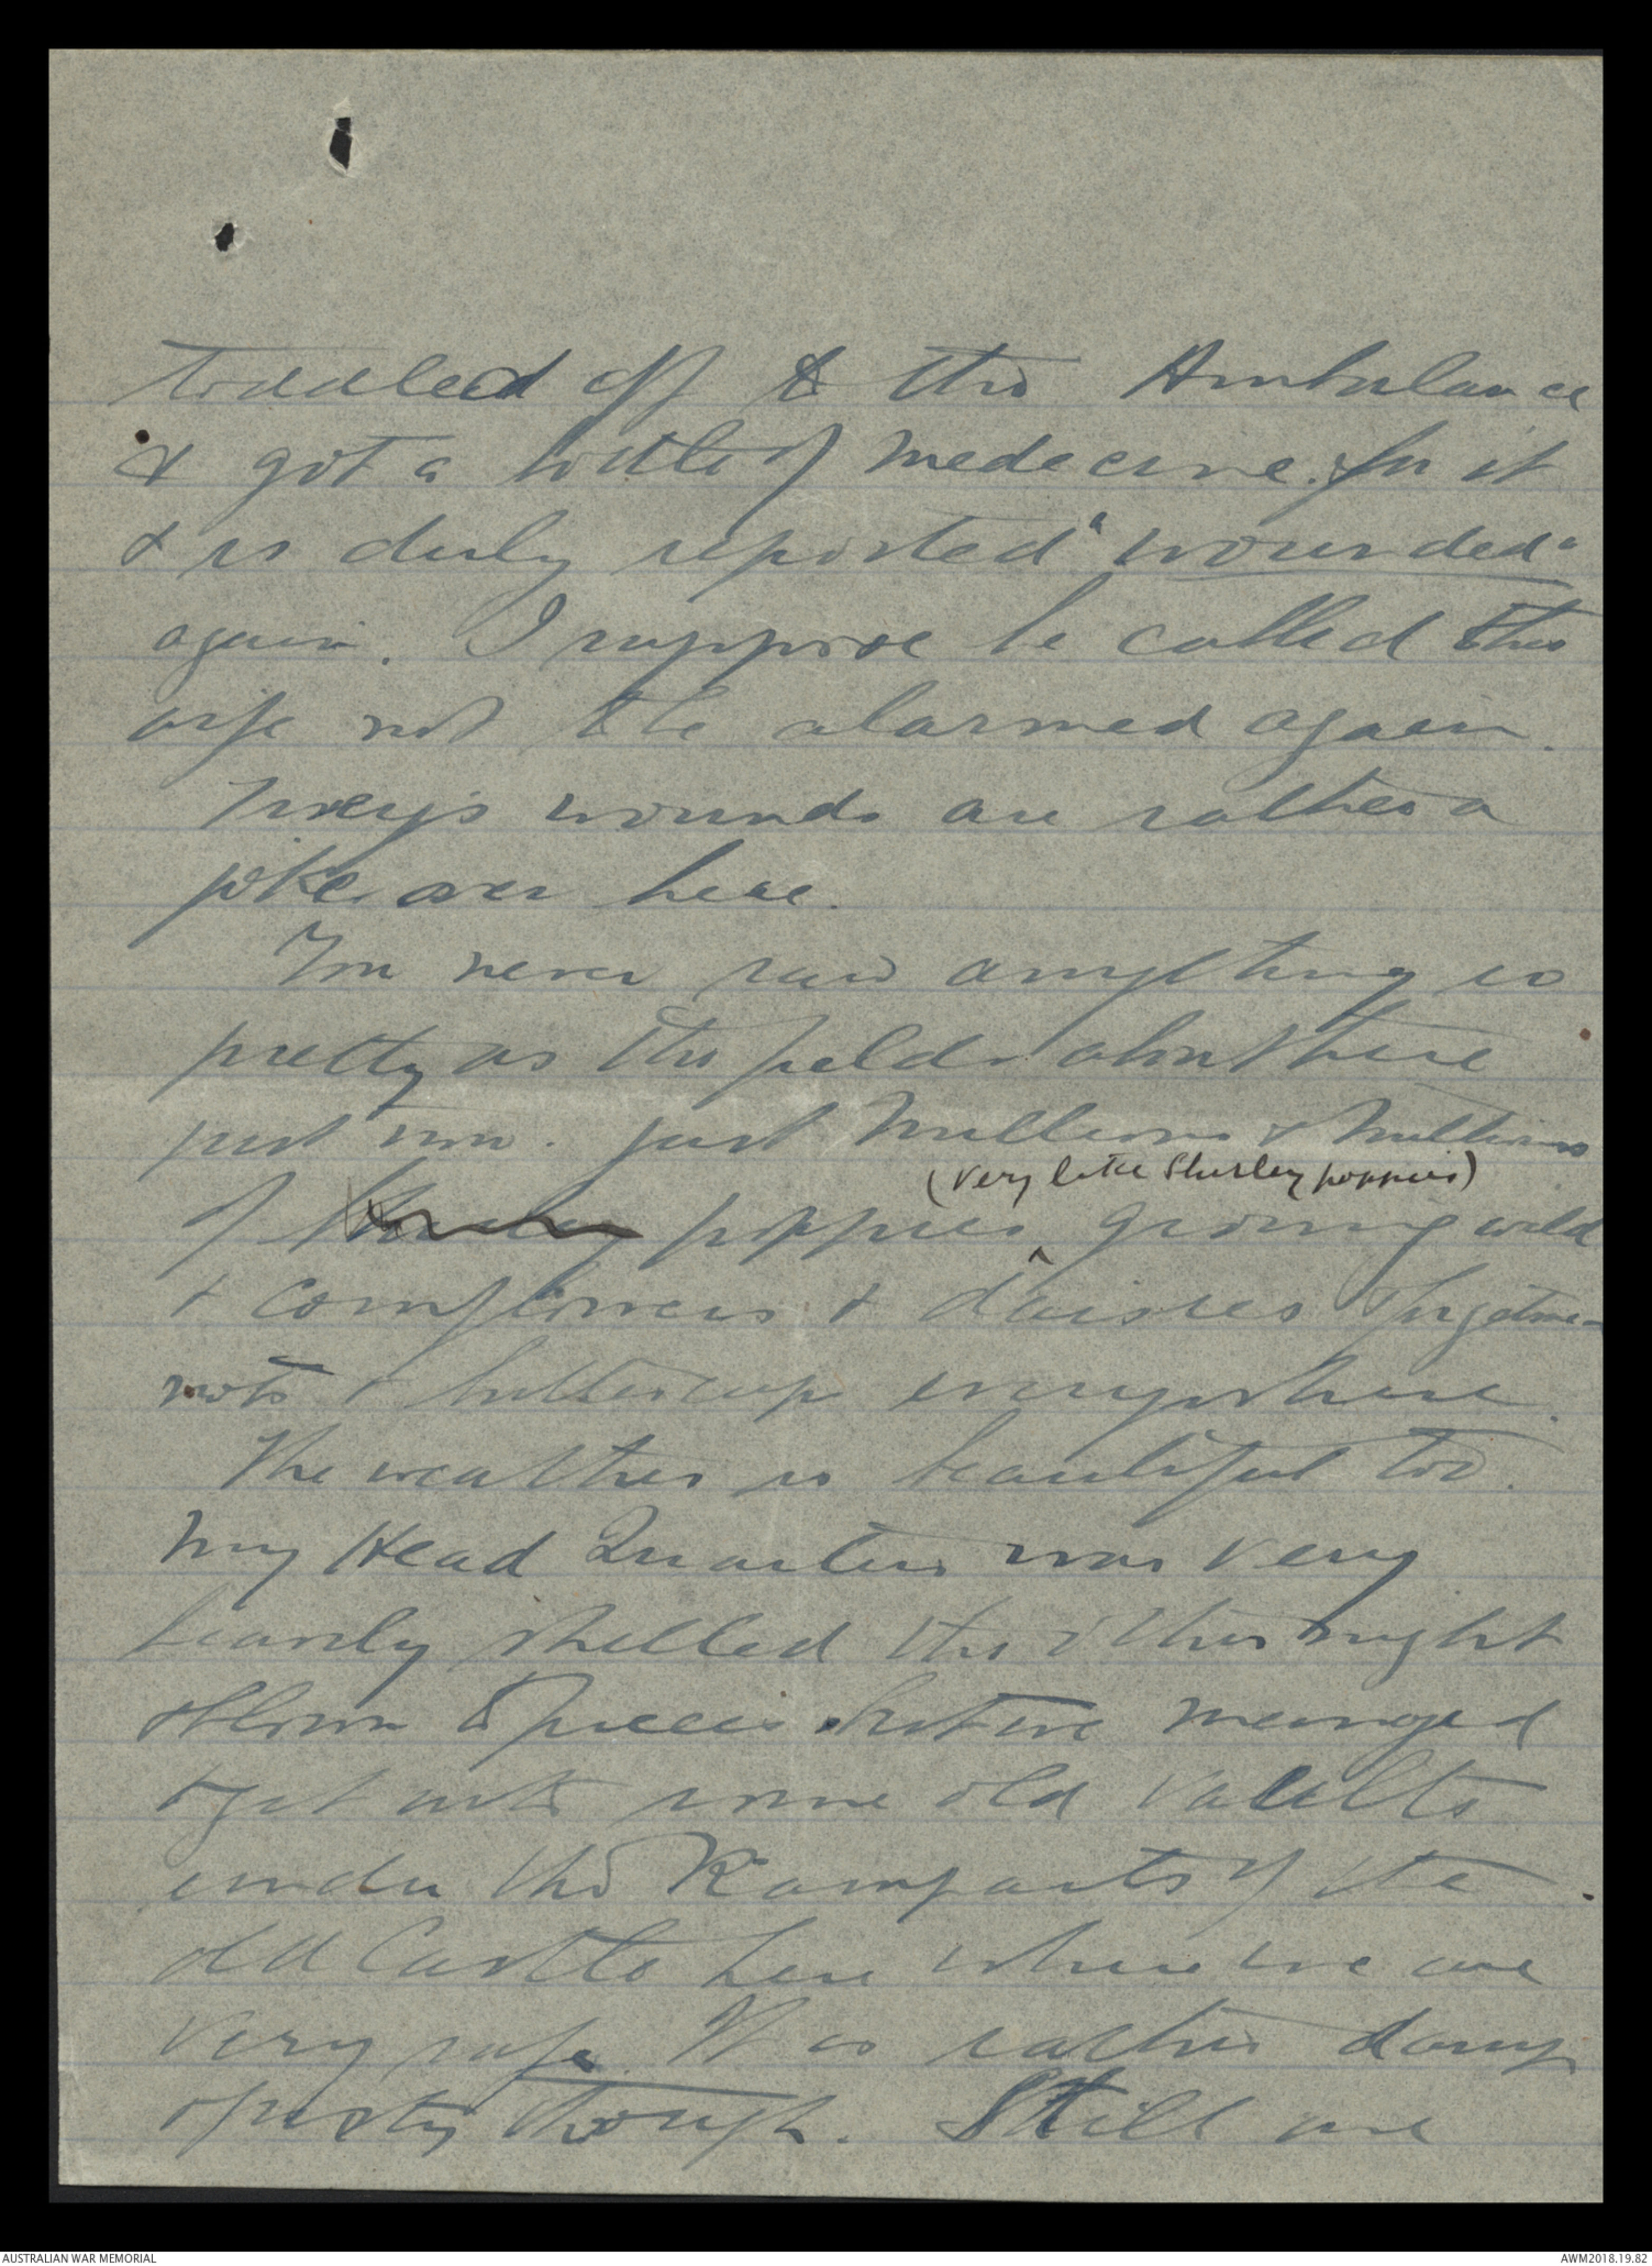 toddled off to the Ambulance
& got a bottle of medecine for it
& is duly reported "wounded"
again. I suppose he called this
wife not to be alarmed again.
wounds are rather a
joke over here.
You never saw anything so
pretty as the fields about here
just now. just Millions & Millions
(very like Shirley poppies)
of poppies growing wild
& cornflowers & daisies & forgetme-
nots & buttercups everywhere.
The weather is beautiful too.
My Head Quarters was very
heavily shelled the other night
& blown to pieces but we manged
to get into some old vaults
under the Ramparts of the
old Castle here where we are
very safe. It is rather damp
& fusty though. Still we